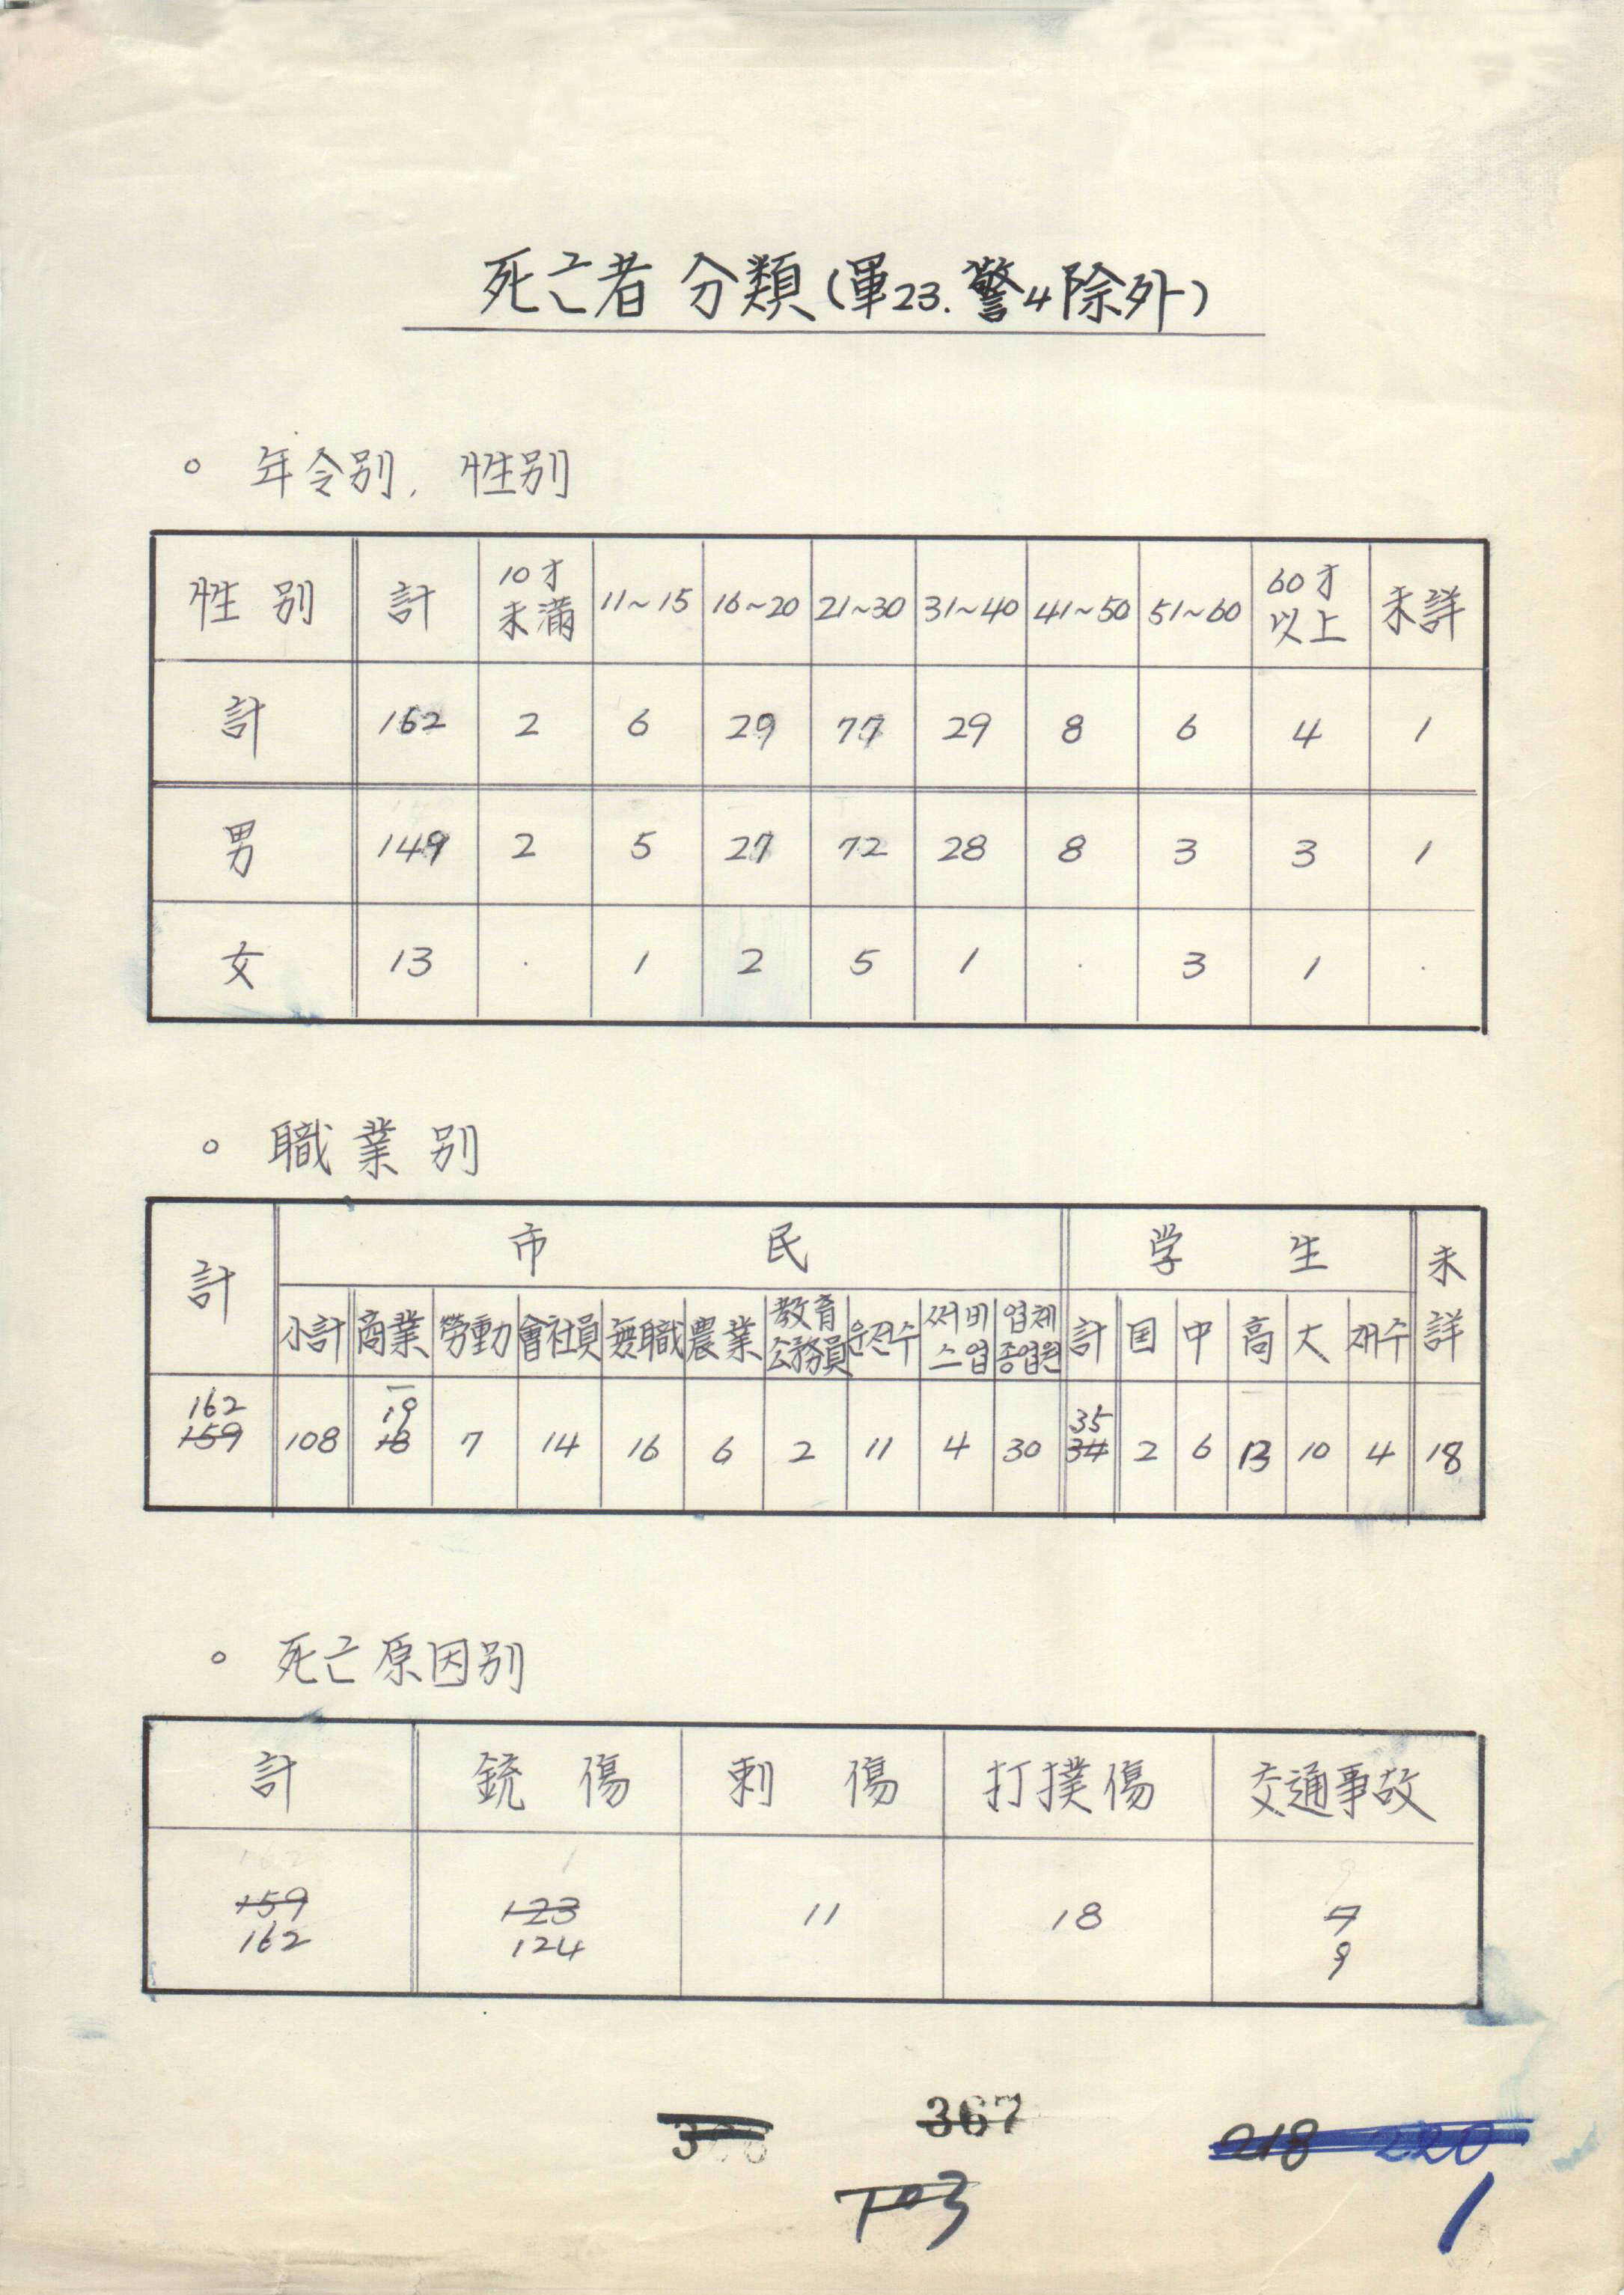 死亡者 分類 (軍23. 警4 除外)
○ 年令別, 性別
性別 計 10才未満 11~15 16~20 21~30 31~40 41~50 51~60 60才以上 未詳
計 162 2 6 29 77 29 8 6 4 1
男 149 2 5 27 72 28 8 3 3 1
女 13 · 1 2 5 1 · 3 1 ·
○ 職業別
計 市民 学生 未詳
小計 商業 勞動 會社員 無職 農業 教育公務員 운전수 써비스업 업체종업원 計 国 中 高 大 재수
162 19 35
159 108 18 7 14 16 6 2 11 4 30 34 2 6 13 10 4 18
○ 死亡原因別
計 銃傷 刺傷 打撲傷 交通事故
162 1 9
159 123 11 18 7
162 124 9
367
218 220
703
1